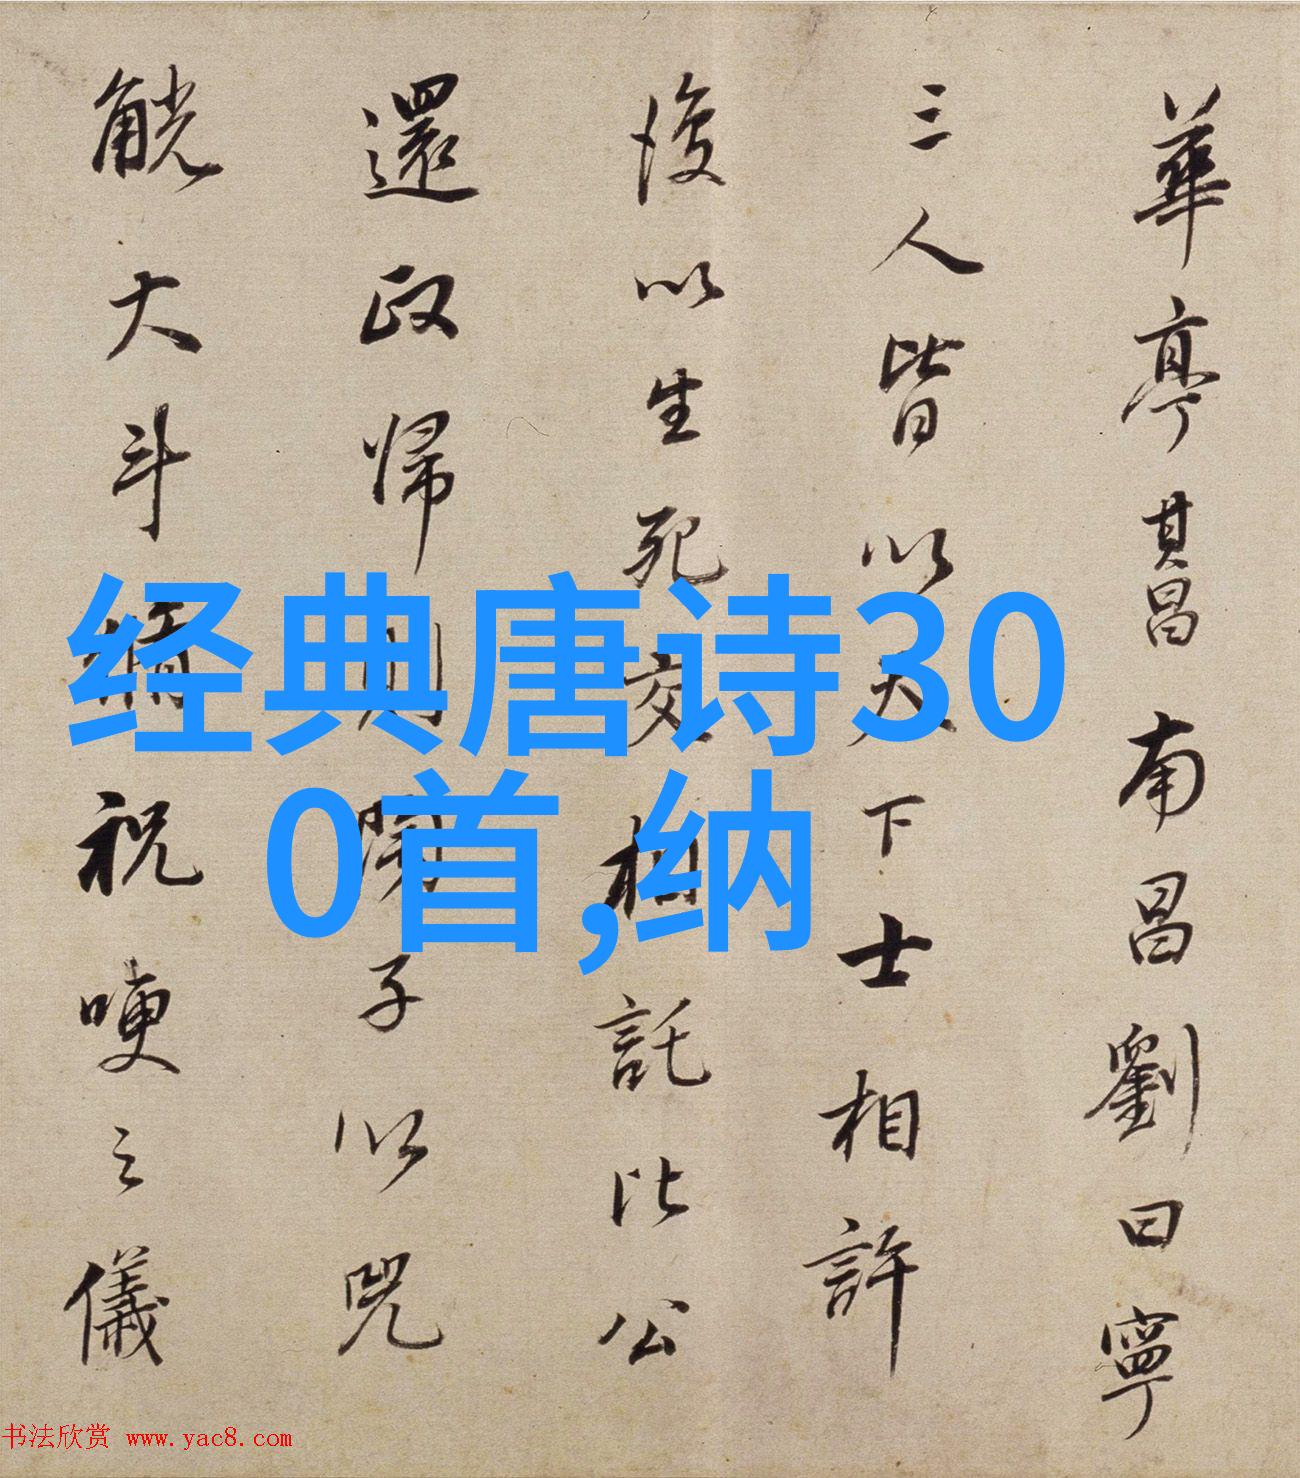 華亭其昌南昌劉曰寧
三人皆以天下士相許
後以生死交相託比公
還政歸則閒子以兕
觥大斗稱祝哽之儀
经典唐诗30
0首,纳
书法欣赏 www.yac8.com